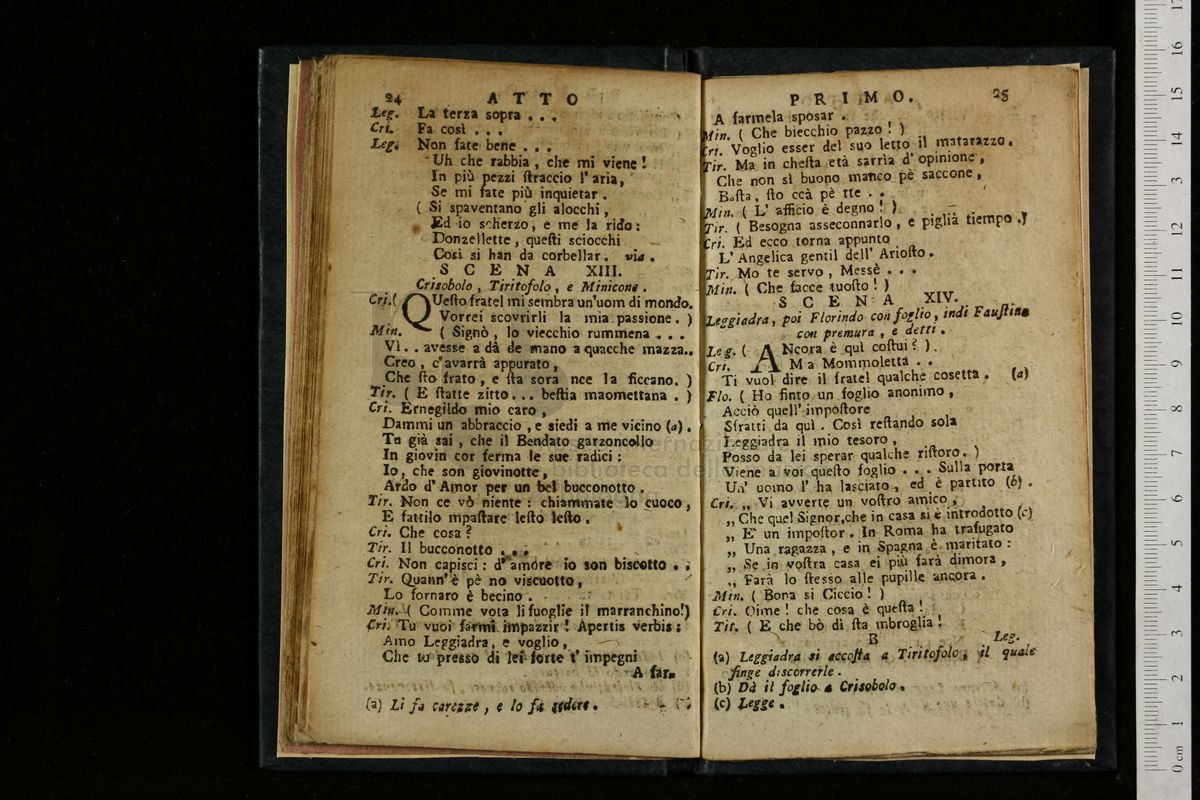 24 ATTO
Leg. La terza sopra . . .
Cri. Fa così . . .
Leg. Non fate bene . . .
Uh che rabbia , che mi viene !
In più pezzi ſtraccio l' aria,
Se mi fate più inquietar .
( Si spaventano gli alocchi ,
Ed io scherzo, e me la rido:
Donzellette , queſti sciocchi
Così si han da corbellar . via .
SCENA XIII.
Crisobolo , Tiritofolo , e Minicone .
Cri.( QUeſto fratel mi sembra un'uom di mondo.
Vorrei scovrirli la mia passione . )
Min. ( Signò , lo viecchio rummena . . .
Vì . . avesse a dà de mano a quacche mazza..
Creo , c'avarrà appurato ,
Che ſto frato , e ſta sora nce la ficcano. )
Tir. ( E ſtatte zitto... beſtia maomettana . )
Cri. Ernegildo mio caro ,
Dammi un abbraccio , e siedi a me vicino (a) .
Tu già sai , che il Bendato garzoncello
In giovin cor ferma le sue radici :
Io, che son giovinotte,
Ardo d' Amor per un bel bucconotto .
Tir. Non ce vò niente : chiammate lo cuoco,
E fattilo mpaſtare leſto leſto .
Cri. Che cosa ?
Tir. Il bucconotto . . .
Cri. Non capisci : d' amore io son biscotto . .
Tir. Quann'è pè no viscuotto ,
Lo fornaro è becino .
Min. ( Comme vota li fuoglie il marranchino!)
Cri. Tu vuoi farmi impazzir ! Apertis verbis :
Amo Leggiadra, e voglio ,
Che tu presso di lei forte t' impegni
A far-
(a) Li fa carezze , e lo fa sedere .
PRIMO. 25
A farmela sposar .
Min. ( Che biecchio pazzo ! )
Cri. Voglio esser del suo letto il matarazzo.
Tir. Ma in cheſta età sarrìa d' opinione ,
Che non sì buono manco pè saccone ,
Baſta, ſto ccà pè tte . .
Min. ( L' afficio è degno ! )
Tir. ( Besogna asseconnarlo , e piglià tiempo .)
Cri. Ed ecco torna appunto
L' Angelica gentil dell' Arioſto.
Tir. Mo te servo , Messè . . .
Min. ( Che facce tuoſto ! )
SCENA XIV.
Leggiadra, poi Florindo con foglio, indi Fauſtina
con premura , e detti .
Leg. ( ANcora è quì coſtui ? ) .
Cri. Ma Mommoletta . .
Ti vuol dire il fratel qualche cosetta . (a)
Flo. ( Ho finto un foglio anonimo ,
Acciò quell' impoſtore
Sfratti da quì . Così reſtando sola
Leggiadra il mio tesoro ,
Posso da lei sperar qualche riſtoro. )
Viene a voi queſto foglio . . . Sulla porta
Un' uomo l' ha lasciato , ed è partito (b) .
Cri. ,, Vi avverte un voſtro amico ,
,, Che quel Signor,che in casa si è introdotto (c)
,, E' un impoſtor . In Roma ha trafugato
,, Una ragazza , e in Spagna è maritato :
,, Se in voſtra casa ei più farà dimora ,
,, Farà lo ſtesso alle pupille ancora .
Min. ( Bona si Ciccio ! )
Cri. Oime ! che cosa è queſta !
Tir. ( E che bò dì ſta mbroglia !
B Leg.
(a) Leggiadra si accoſta a Tiritofolo, il quale
finge discorrerle .
(b) Dà il foglio a Crisobolo .
(c) Legge .